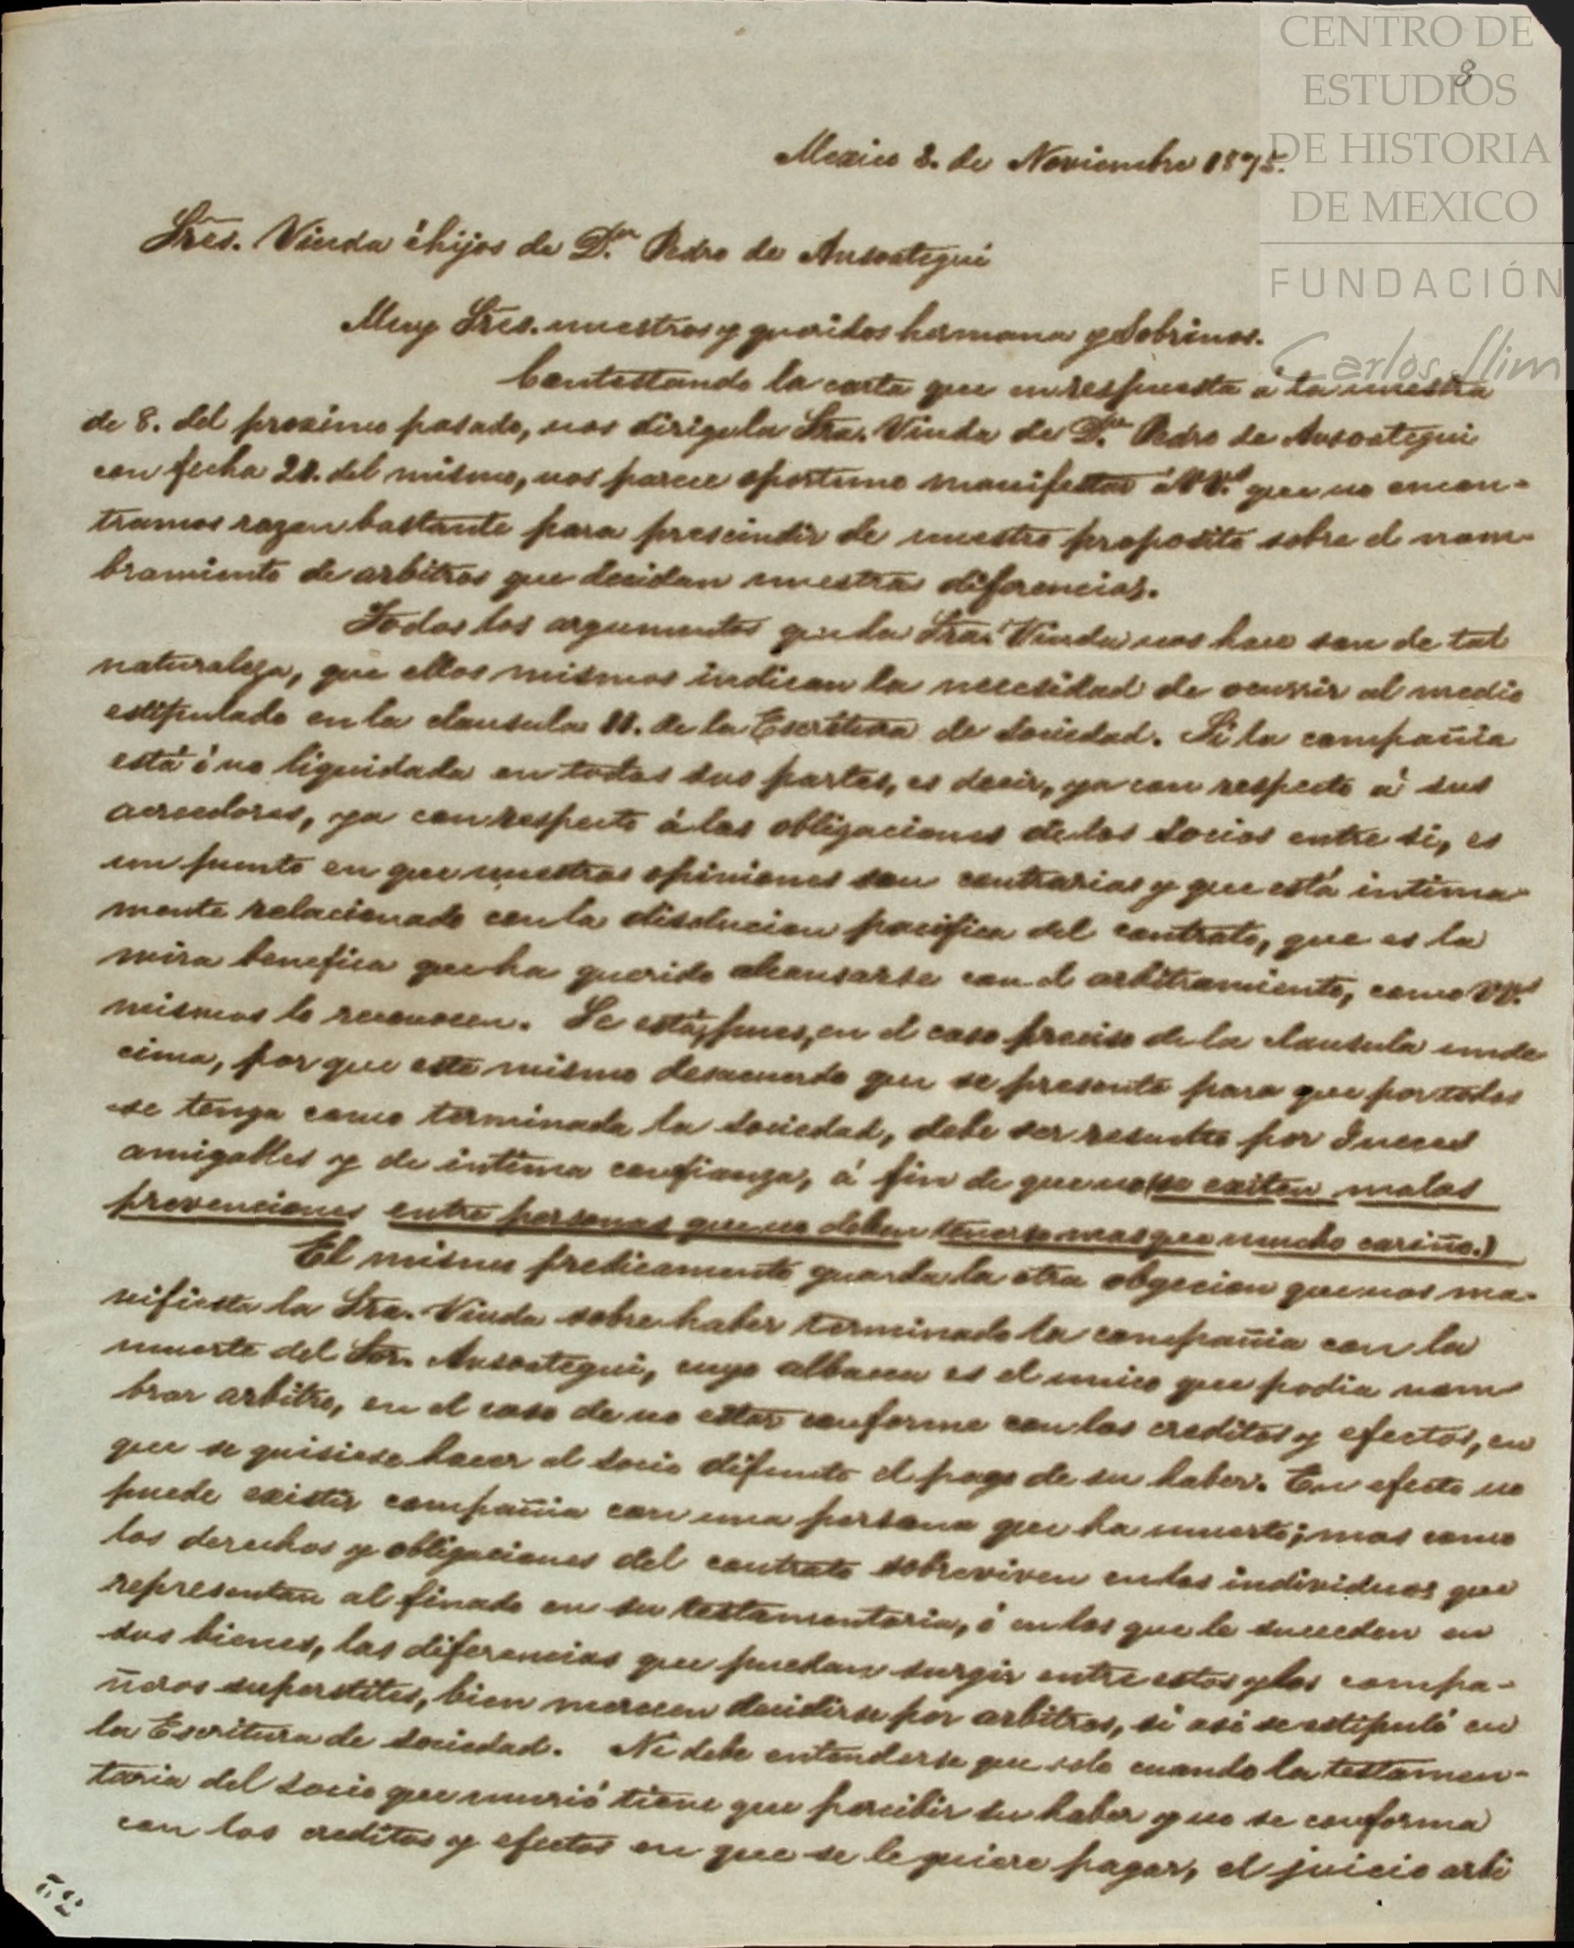 CENTRO DE
ESTUDIOS
DE HISTORIA
DE MEXICO
FUNDACIÓN
Carlos Slim
8
Mexico 8. de Noviembre 1875.
Sres. Viuda é hijos de Dn. Pedro de Ansoategui
Muy Sres. nuestros y queridos hermana y Sobrinos.
Contestando la carta que en respuesta á la nuestra
de 8. del proximo pasado, nos dirige la Sra. Viuda de Dn. Pedro de Ansoategui
con fecha 28. del mismo, nos parece oportuno manifestar á VV.s que no encon-
tramos razon bastante para prescindir de nuestro proposito sobre el nom-
bramiento de arbitros que decidan nuestras diferencias.
Todos los argumentos que la Sra. Viuda nos hace son de tal
naturaleza, que ellos mismos indican la necesidad de ocurrir al medio
estipulado en la clausula 11. de la Escritura de Sociedad. Si la compañia
está ó no liquidada en todas sus partes, es decir, ya con respecto á sus
acreedores, ya con respecto á las obligaciones de los Socios entre si, es
un punto en que nuestras opiniones son contrarias y que está intima-
mente relacionado con la disolucion pacifica del contrato, que es la
mira benefica que ha querido alcansarse con el arbitramiento, como VV.s
mismos lo reconocen. Se está, pues, en el caso preciso de la clausula unde
cima, por que este mismo desacuerdo que se presenta para que por todos
se tenga como terminada la Sociedad, debe ser resuelto por Jueces
amigables y de intima confianza, á fin de que no (se exiten malas
prevenciones entre personas que no deben tenerse mas que mucho cariño.)
El mismo predicamento guarda la otra obgecion que nos ma-
nifiesta la Sra. Viuda sobre haber terminado la compañia con la
muerte del Sor. Ansoategui, cuyo albacea es el unico que podia nom
brar arbitro, en el caso de no estar conforme con los creditos y efectos, en
que se quisiese hacer al Socio difunto el pago de su haber. En efecto no
puede existir compañia con una persona que ha muerto; mas como
los derechos y obligaciones del contrato sobreviven en los individuos que
representan al finado en su testamentaria, ó en los que le suceden en
sus bienes, las diferencias que puedan surgir entre estos y los compa-
ñeros superstites, bien merecen decidirse por arbitros, si asi se estipuló en
la Escritura de Sociedad. Ni debe entenderse que solo cuando la testamen-
taria del Socio que murió tiene que percibir su haber y no se conforma
con los creditos y efectos en que se le quiere pagar, el juicio arbi